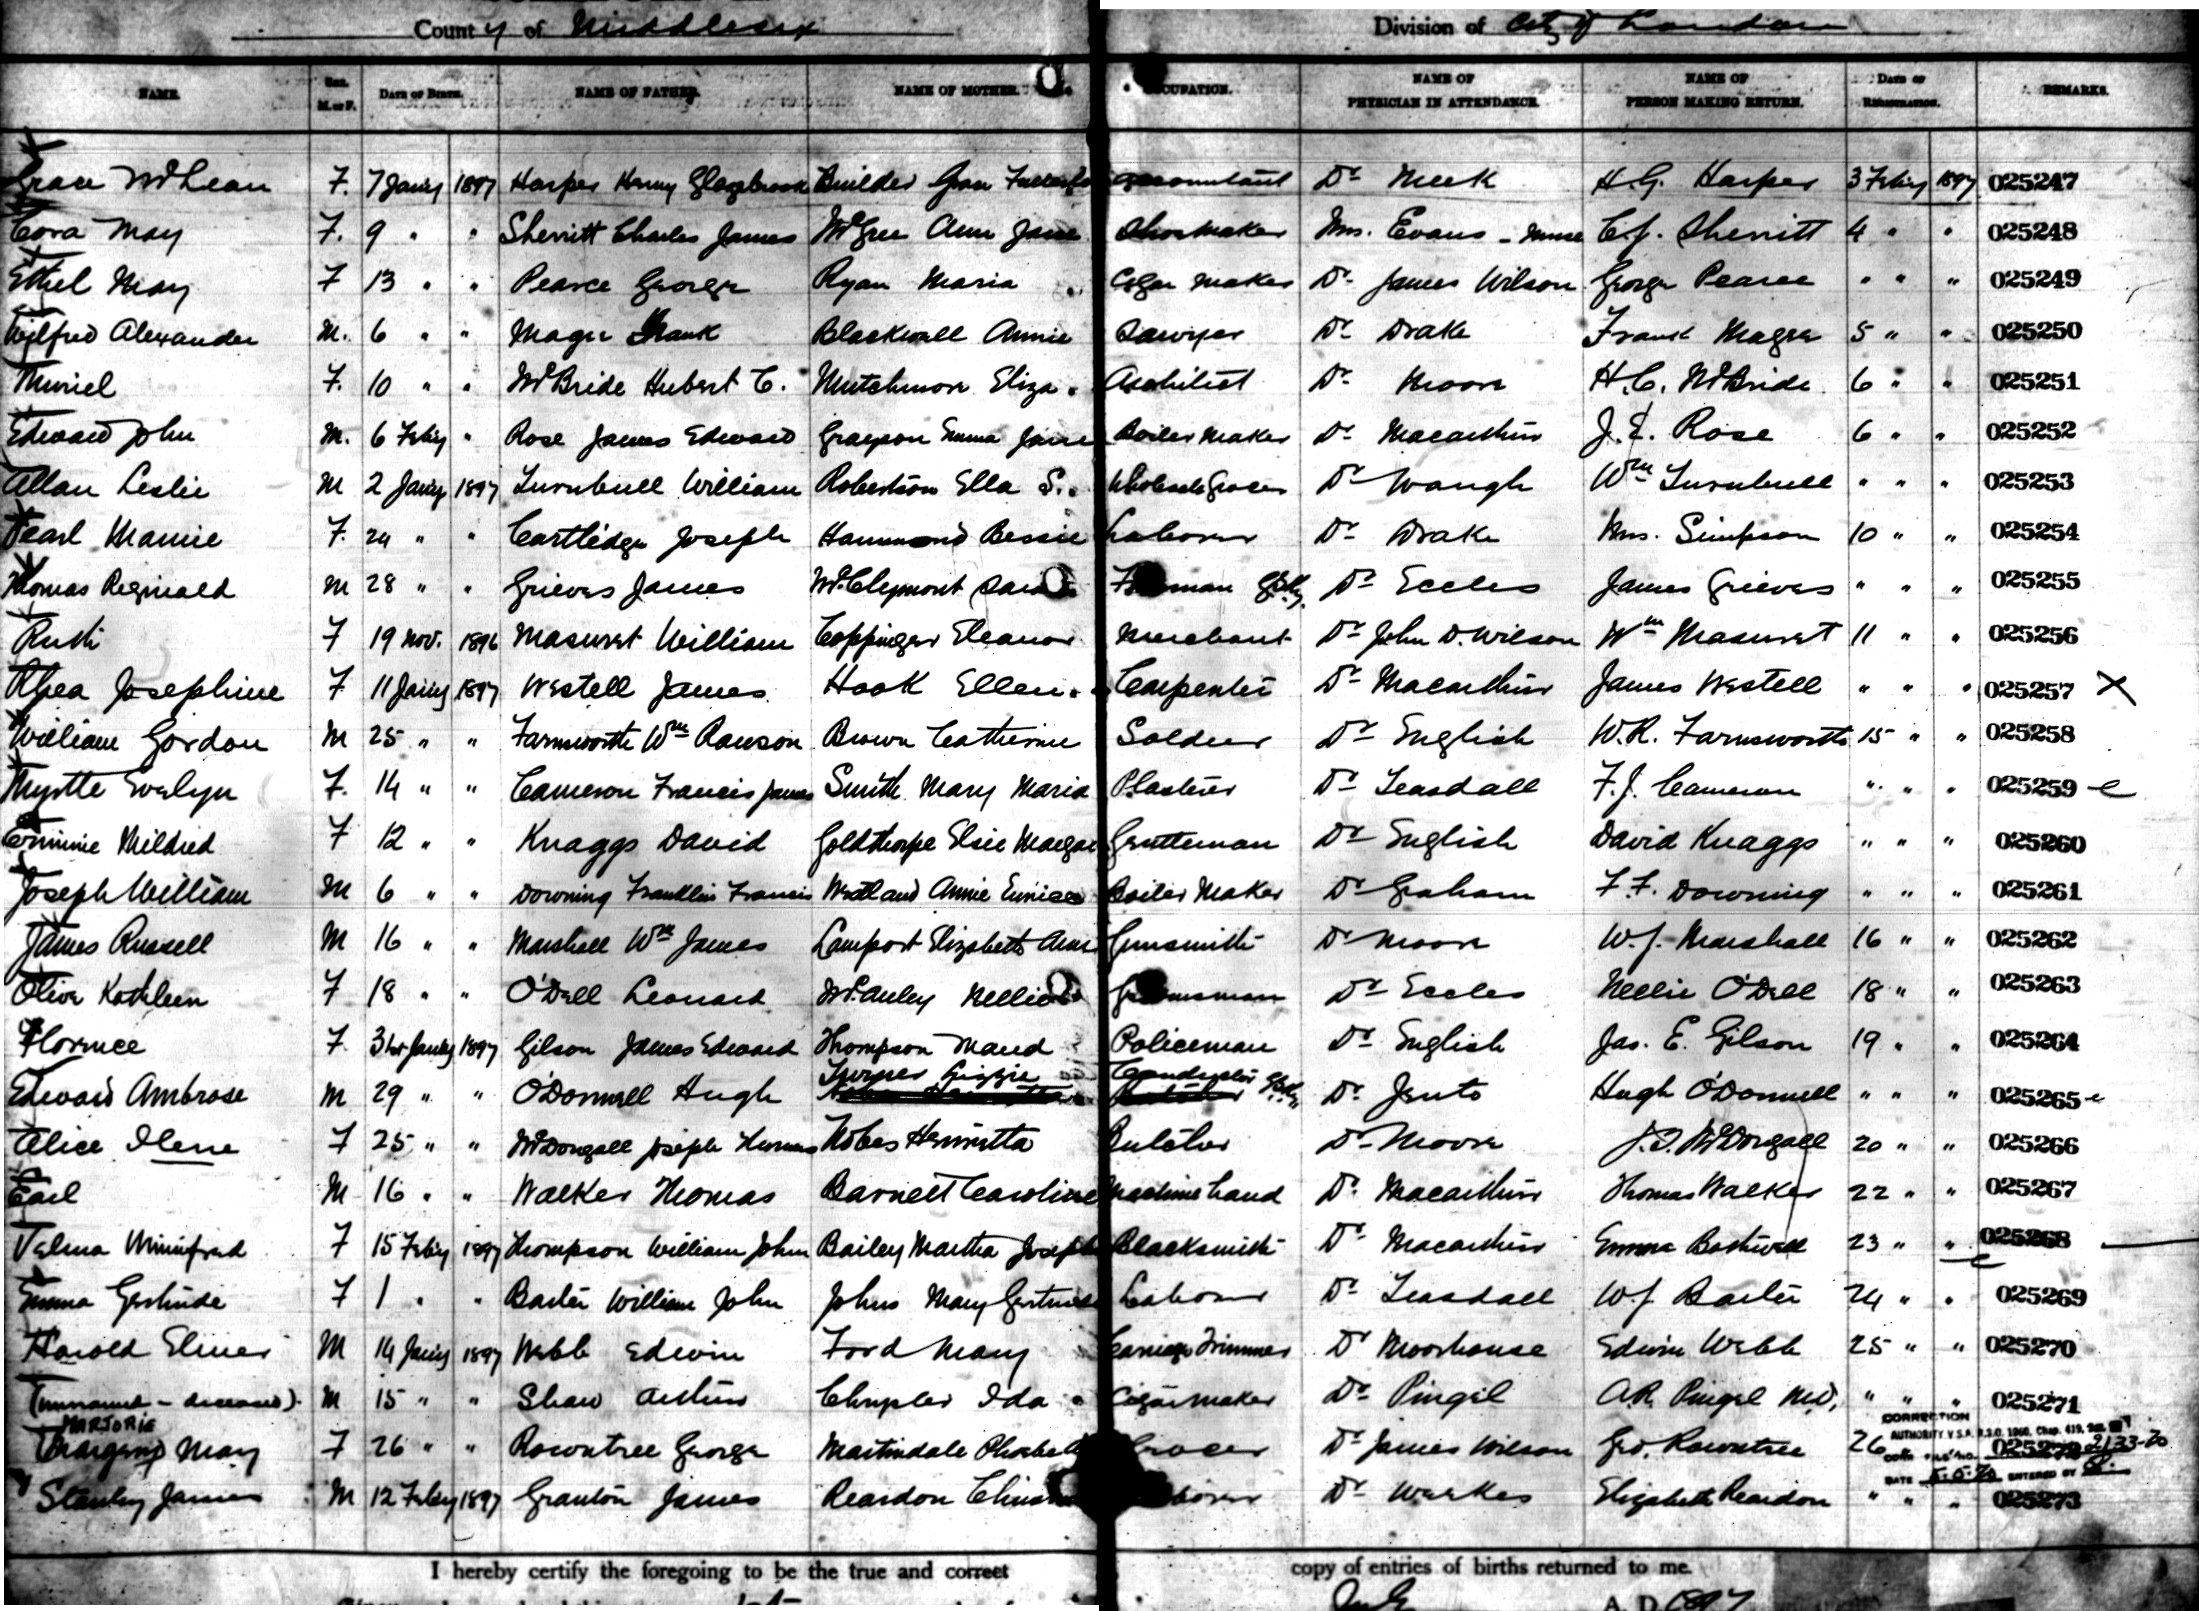 County of Middlesex Division of City of London
NAME. Sex. M. or F. Date of Birth. NAME OF FATHER. NAME OF MOTHER. OCCUPATION. NAME OF PHYSICIAN IN ATTENDANCE. NAME OF PERSON MAKING RETURN. Date of Registration. REMARKS.
Grace McLean F. 7 Jany 1897 Harper Henry Glazebrook Builder Accountant Dr Meek H.G. Harper 3 Feby 1897 025247
Cora May F. 9 " " Sherritt Charles James McGee Ann Jane Shoemaker Mrs. Evans - Nurse C.J. Sherritt 4 " " 025248
Ethel May F 13 " " Pearce George Ryan Maria Cigar Maker Dr James Wilson George Pearce " " " 025249
Wilfred Alexander M. 6 " " Magee Frank Blackwall Annie Sawyer Dr Drake Frank Magee 5 " " 025250
Muriel F. 10 " " McBride Hubert C. Hutchinson Eliza Architect Dr Moore H.C. McBride 6 " " 025251
Edward John M. 6 Feby " Rose James Edward Grayson Emma Jane Boiler Maker Dr Macarthur J.E. Rose 6 " " 025252
Allan Leslie M 2 Jany 1897 Turnbull William Robertson Ella S. Wholesale Grocer Dr Waugh Wm Turnbull " " " 025253
Pearl Mamie F. 24 " " Cartlidge Joseph Hammond Bessie Laborer Dr Drake Mrs. Simpson 10 " " 025254
Thomas Reginald M 28 " " Grieves James McClymont Dr Eccles James Grieves " " " 025255
Ruth F 19 Nov. 1896 Masuret William Coppinger Eleanor Merchant Dr John D. Wilson Wm Masuret 11 " " 025256
Rhea Josephine F 11 Jany 1897 Westell James Hook Ellen Carpenter Dr Macarthur James Westell " " " 025257 X
William Gordon M 25 " " Farnsworth Wm Rawson Brown Catherine Soldier Dr English W.R. Farnsworth 15 " " 025258
Myrtle Evelyn F. 14 " " Cameron Francis James Smith Mary Maria Plasterer Dr Teasdall F.J. Cameron " " " 025259
Mildred F 12 " " Knaggs David Goldthorpe Elsie Gentleman Dr English David Knaggs " " " 025260
Joseph William M 6 " " Downing Franklin Francis Westland Annie Eunice Boiler Maker Dr Graham F.F. Downing " " " 025261
James Russell M 16 " " Marshall Wm James Lamport Elizabeth Ann Gunsmith Dr Moore W.J. Marshall 16 " " 025262
Olive Kathleen F 18 " " O'Dell Leonard McAuley Nellie Dr Eccles Nellie O'Dell 18 " " 025263
Florence F. 31st Jany 1897 Gilson James Edward Thompson Maud Policeman Dr English Jas. E. Gilson 19 " " 025264
Edward Ambrose M 29 " " O'Donnell Hugh Turner Lizzie Conductor Dr Jento Hugh O'Donnell " " " 025265
Alice Ilene F 25 " " McDougall Joseph Thomas Nobes Henrietta Butcher Dr Moore J.T. McDougall 20 " " 025266
Earl M 16 " " Walker Thomas Barnett Caroline Machine hand Dr Macarthur Thomas Walker 22 " " 025267
Velma Winnifred F 15 Feby 1897 Thompson William John Bailey Martha Joseph Blacksmith Dr Macarthur Emma Bothwell 23 " " 025268
Emma Gertrude F 1 " " Baxter William John Johns Mary Gertrude Laborer Dr Teasdall W.J. Baxter 24 " " 025269
Harold Elmer M 14 Jany 1897 Webb Edwin Ford Mary Carriage Trimmer Dr Moorhouse Edwin Webb 25 " " 025270
(unnamed - deceased). M 15 " " Shaw Arthur Chrysler Ida Cigar Maker Dr Pingel A.R. Pingel M.D. " " " 025271
MARJORIE
May F 26 " " Rowntree George Martindale Phoebe Grocer Dr James Wilson Geo. Rowntree 26 025272
CORRECTION AUTHORITY V.S.A. R.S.O. 1960, Chap. 419, FILE NO. 2133-70 DATE ENTERED BY
Stanley James M 12 Feby 1897 Granton James Reardon Laborer Dr Weekes Elizabeth Reardon " " " 025273
I hereby certify the foregoing to be the true and correct copy of entries of births returned to me.
July A. D. 1897